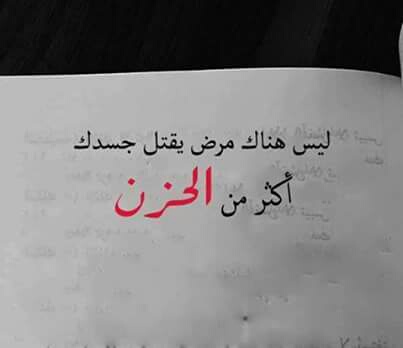 ليس هناك مرض يقتل جسدك
أكثر من الحزن